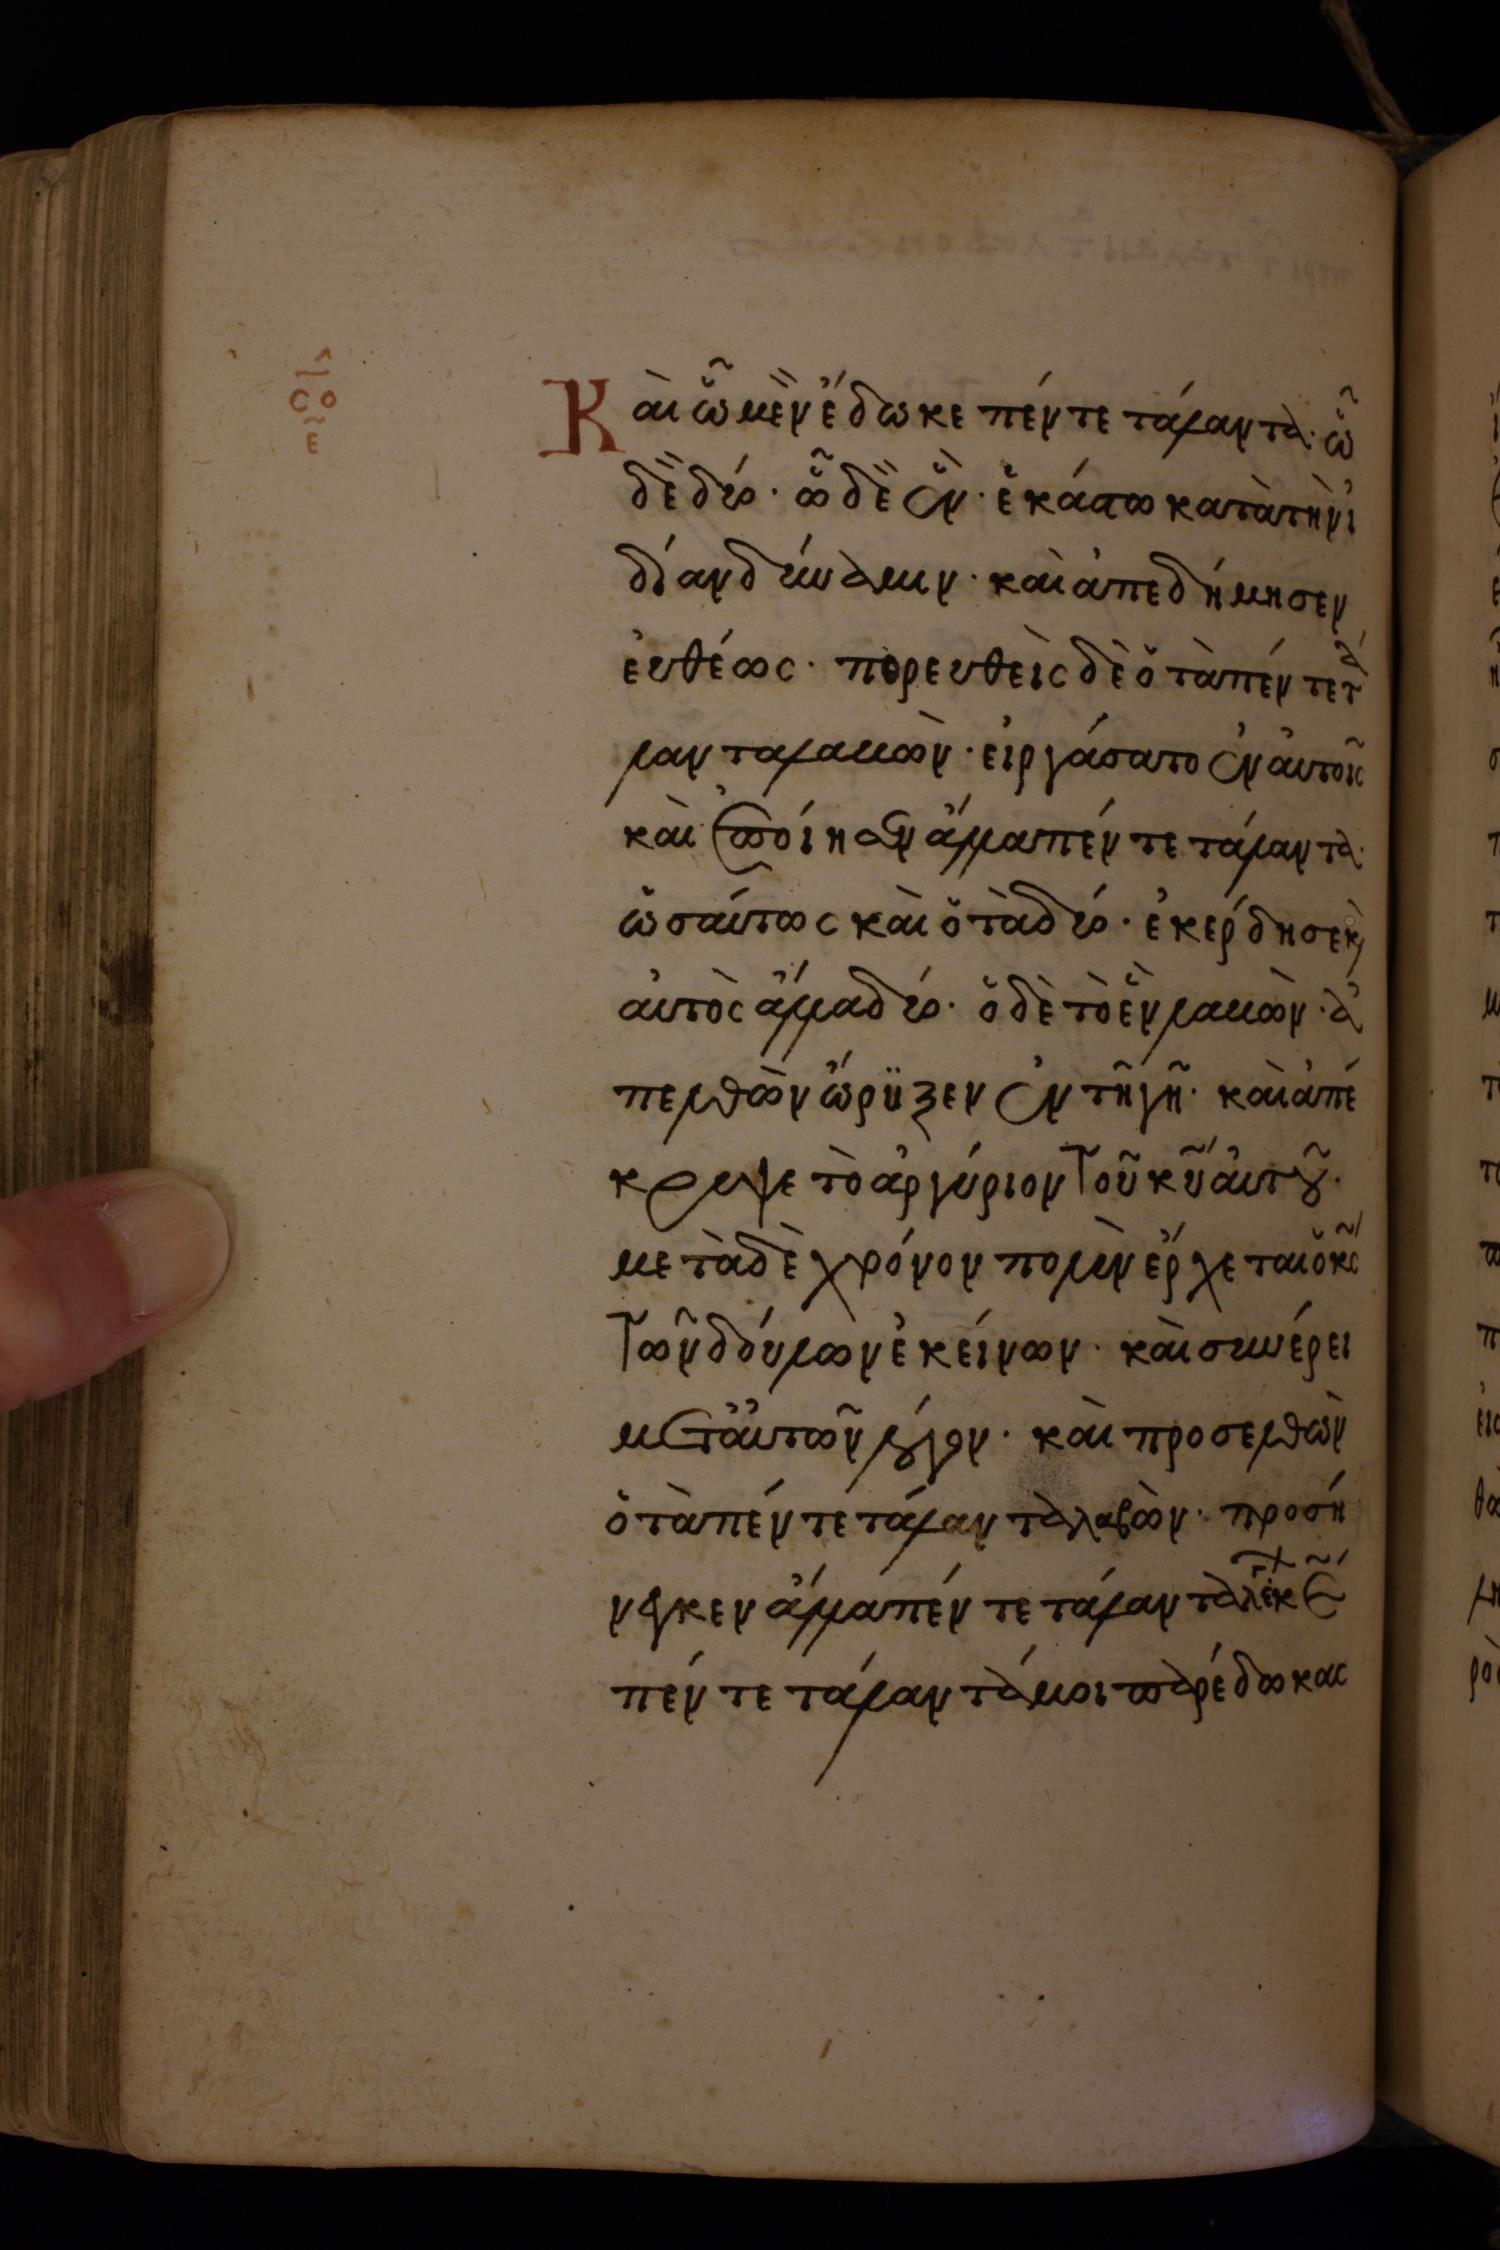 σο
ε
Καὶ ὧ μὲν ἔδωκε πέντε τάλαντα· ὧ
δὲ δύο· ὧ δὲ ἕν· ἑκάστω κατὰ τὴν ἰ
δίαν δύναμιν· καὶ ἀπεδήμησεν
εὐθέως· πορευθεὶς δὲ ὁ τὰ πέντε τά
λαντα λαβὼν· εἰργάσατο ἐν αὐτοῖς
καὶ ἐποίησεν ἄλλα πέντε τάλαντα·
ὡσαύτως καὶ ὁ τὰ δύο· ἐκέρδησε κ
αὐτὸς ἄλλα δύο· ὁ δὲ τὸ ἓν λαβὼν· ἀ
πελθὼν ὤρυξεν ἐν τῆ γῆ· καὶ ἀπέ
κρυψε τὸ ἀργύριον τοῦ κυ αὐτοῦ·
μετὰ δὲ χρόνον πολὺν ἔρχεται ὁ κς
τῶν δούλων ἐκείνων· καὶ συναίρει
μετ᾽ αὐτῶν λόγον· καὶ προσελθὼν
ὁ τὰ πέντε τάλαντα λαβὼν· προσή
νεγκεν ἄλλα πέντε τάλαντα λέγ κε
πέντε τάλαντά μοι παρέδωκας